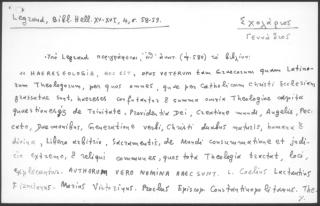 Legrand, Bibl. Hell. XV-XVI, 4, σ. 58-59.
Σχολάριος
Γεννάδιος
Ὑπὸ Legrand περιγράφεται ὑπ' ἀριθ. (4.580) τὸ βιβλίον:
"HAERESEOLOGIA, HOC EST, OPUS VETERUM tam Graecorum quam Latino-
rum Theologorum, per quos omnes, quae per Catholicam Christi Ecclesiam
grassatae sunt, haereses confutantur & summa omnia Theologiae capita
quaestionesq; de Trinitate, Providentia Dei, Creatione mundi, Angelis, Pec-
cato, Daemonibus, Generatione verbi, Christi duabus naturis, humana &
divina, Libero arbitrio, Sacramentis, de Mundi consummatione et judi-
cio extremo, & reliqui communes, quos tota Theologia tractat, loci,
explicantur. AUTHORUM VERO NOMINA HAEC SUNT. L. Coelius Lactantius
Firmianus. Marius Victorinus. Proclus Episcop. Constantinopolitanus. The-